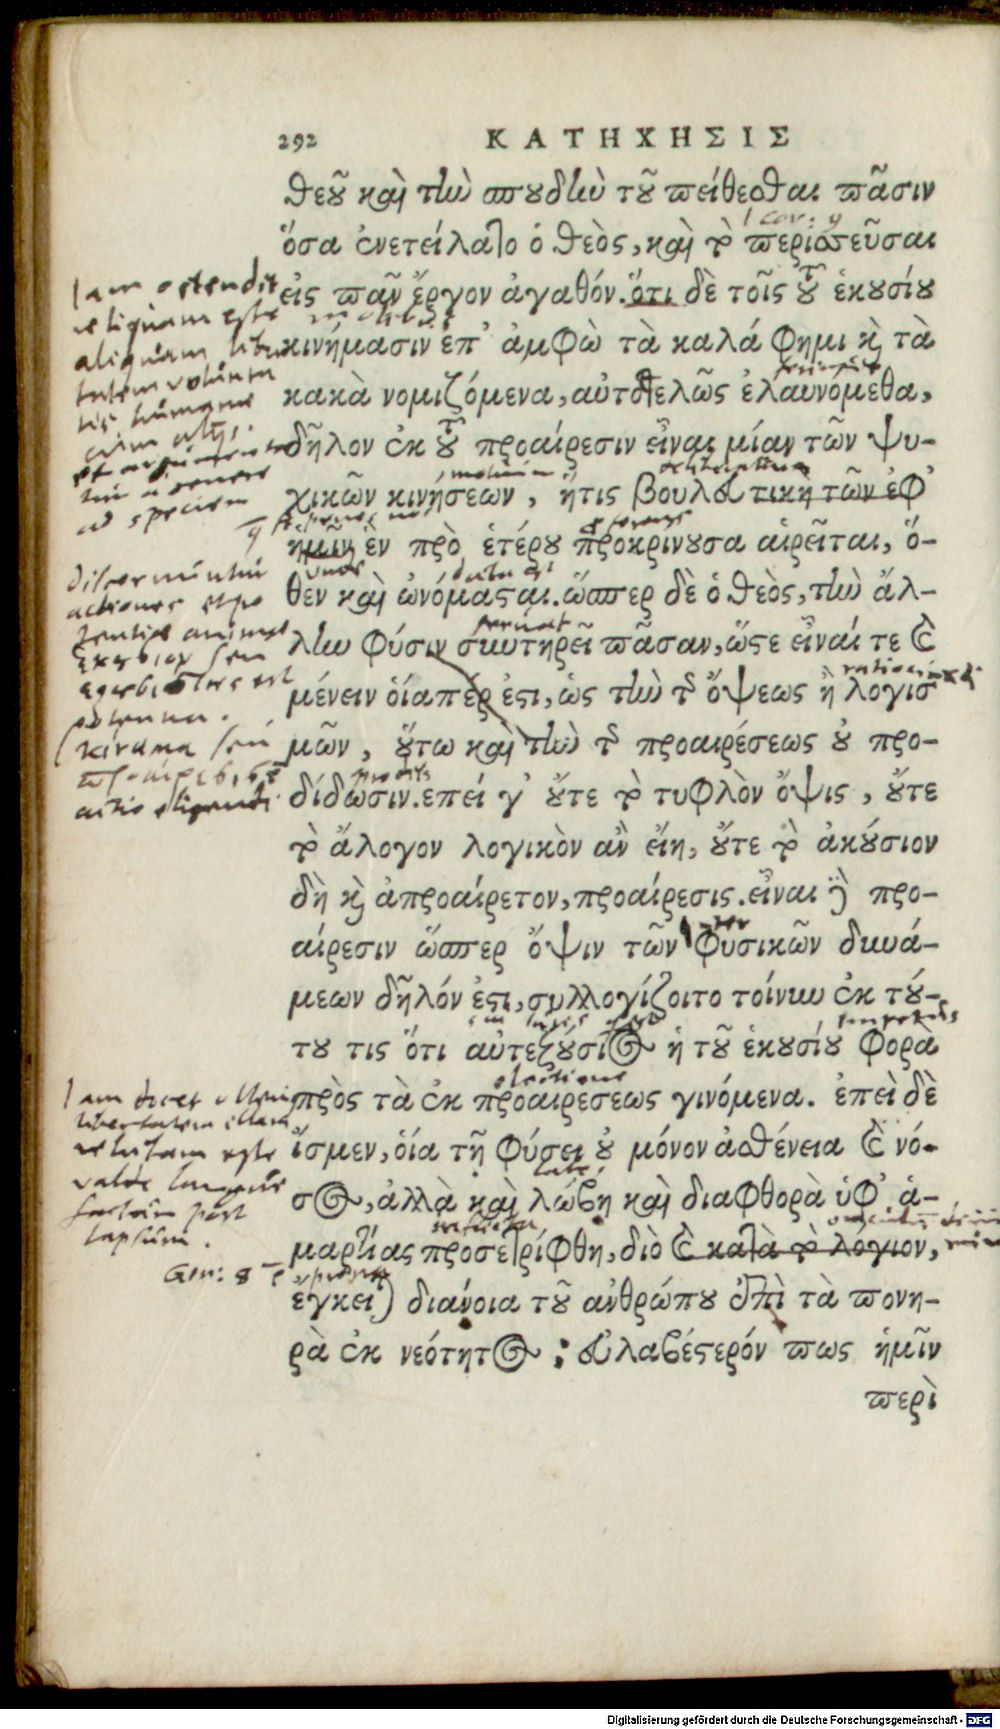 292 ΚΑΤΗΧΗΣΙΣ
θεοῦ καὶ τὴν σπουδὴν τοῦ πείθεσθαι πᾶσιν
ὅσα ἐνετείλατο ὁ θεὸς, καὶ τὸ περισσεῦσαι
εἰς πᾶν ἔργον ἀγαθόν. ὅτι δὲ τοῖς τοῦ ἑκουσίου
κινήμασιν ἐπ' ἀμφὼ τὰ καλά φημι καὶ τὰ
κακὰ νομιζόμενα, αὐτοτελῶς ἐλαυνόμεθα,
δῆλον ἐκ τοῦ προαίρεσιν εἶναι μίαν τῶν ψυ-
χικῶν κινήσεων, ἥτις βουλευτικὴ τῶν ἐφ'
ἡμῖν ἓν πρὸ ἑτέρου προκρίνουσα αἱρεῖται, ὅ-
θεν καὶ ὠνόμασται. ὥσπερ δὲ ὁ θεὸς, τὴν ἄλ-
λην φύσιν συντηρεῖ πᾶσαν, ὥστε εἶναί τε καὶ
μένειν οἵαπέρ ἐστι, ὡς τὴν τῆς ὄψεως ἢ λογισ
μῶν, οὕτω καὶ τὴν τῆς προαιρέσεως οὐ προ-
δίδωσιν. ἐπεί γ' οὔτε τὸ τυφλὸν ὄψις, οὔτε
τὸ ἄλογον λογικὸν ἂν εἴη, οὔτε τὸ ἀκούσιον
δὴ καὶ ἀπροαίρετον, προαίρεσις. εἶναι δὲ προ-
αίρεσιν ὥσπερ ὄψιν τῶν φυσικῶν δυνά-
μεων δῆλόν ἐστι, συλλογίζοιτο τοίνυν ἐκ τού-
του τις ὅτι αὐτεξούσιος ἡ τοῦ ἑκουσίου φορὰ
πρὸς τὰ ἐκ προαιρέσεως γινόμενα. ἐπεὶ δὲ
ἴσμεν, οἵα τῇ φύσει οὐ μόνον ἀσθένεια καὶ νό-
σος, ἀλλὰ καὶ λώβη καὶ διαφθορὰ ὑφ' ἁ-
μαρτίας προσετρίφθη, διὸ καὶ κατὰ τὸ λόγιον,
ἔγκειται διάνοια τοῦ ἀνθρώπου ἐπὶ τὰ πονη-
ρὰ ἐκ νεότητος; εὐλαβέστερόν πως ἡμῖν
περὶ
Iam ostendit
reliquam esse
aliquam liber
tatem volunta
tis humanæ
discernuntur
actiones
Iam docet
libertatem illam
valde
post
lapsum.
Gen: 8
Digitalisierung gefördert durch die Deutsche Forschungsgemeinschaft - DFG